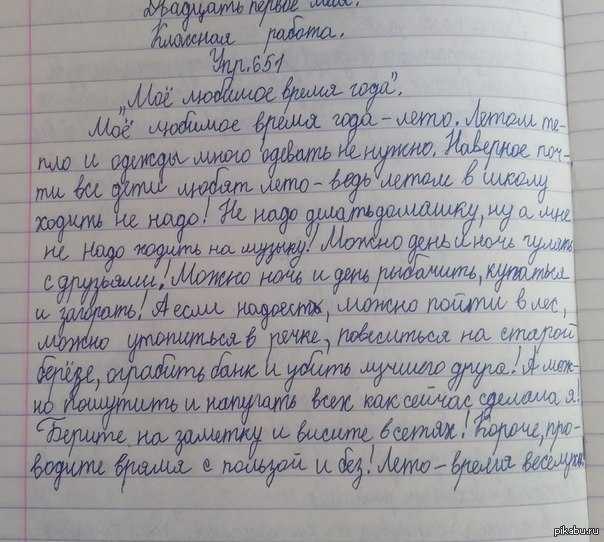 Двадцать первое мая.
Классная работа.
Упр. 651
„Моё любимое время года".
Моё любимое время года – лето. Летом те-
пло и одежды много одевать не нужно. Наверное поч-
ти все дети любят лето – ведь летом в школу
ходить не надо! Не надо делать домашку, ну а мне
не надо ходить на музыку! Можно день и ночь гулять
с друзьями! Можно ночь и день рыбачить, купаться
и загорать! А если надоест, можно пойти в лес,
можно утопиться в речке, повеситься на старой
берёзе, ограбить банк и убить лучшего друга! А мож-
но пошутить и напугать всех как сейчас сделала я!
Берите на заметку и висите в сетях! Короче, про-
водите врямя с пользой и без! Лето – время веселухи!
pikabu.ru